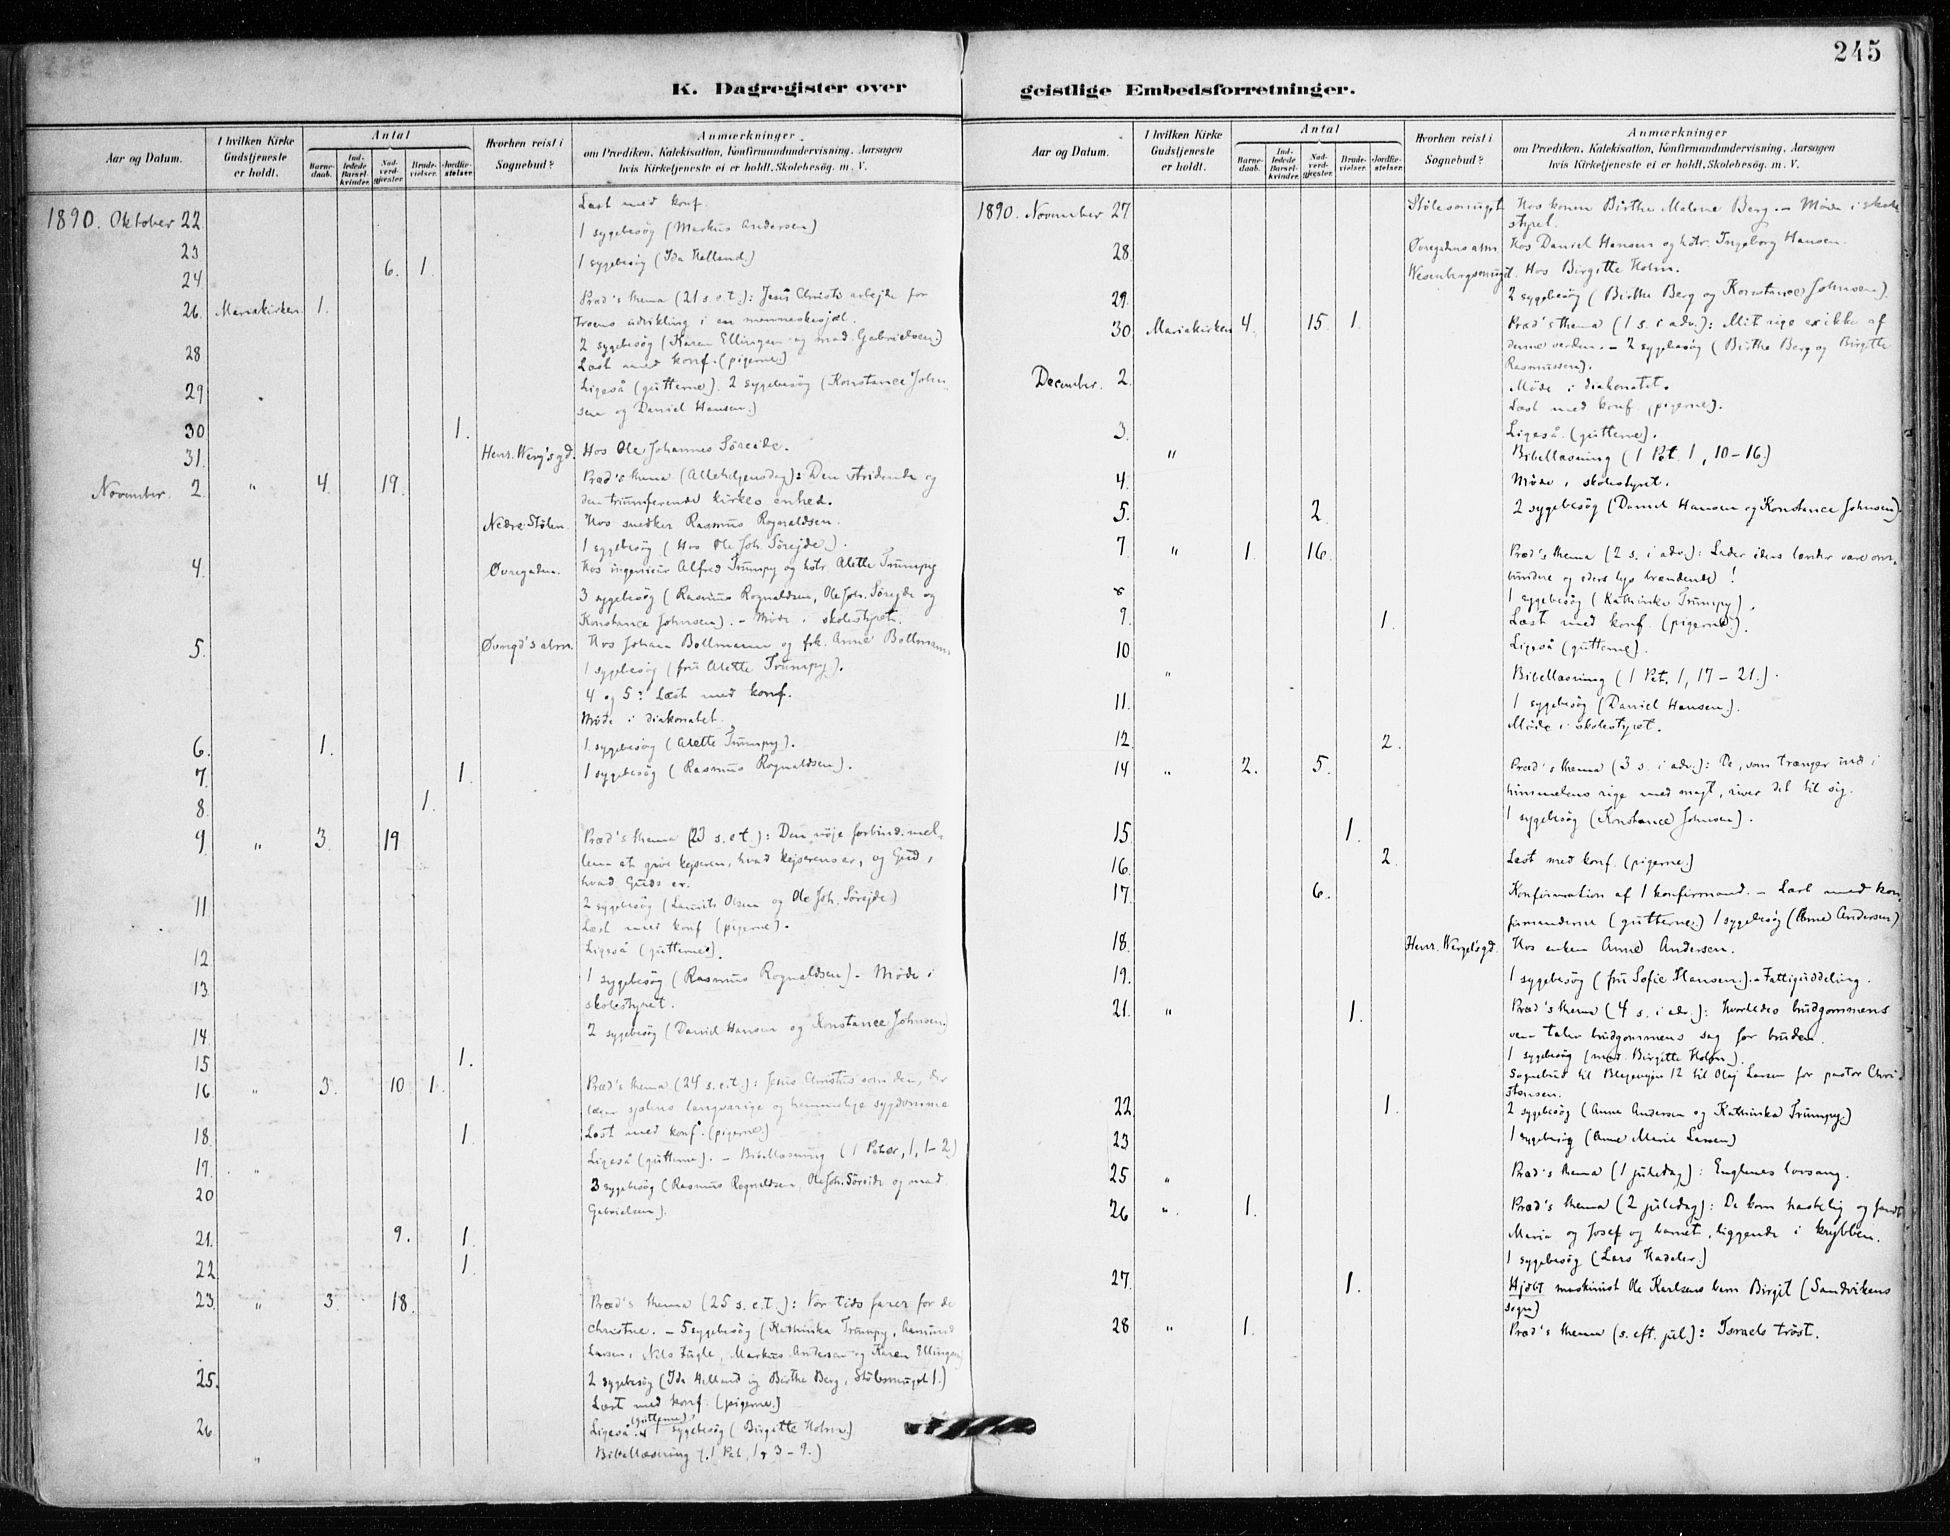 245
K. Dagregister over geistlige Embedsforretninger.
Aar og Datum.
I hvilken Kirke Gudstjeneste er holdt.
Antal
Barnedaab.
Indledede Barselkvinder.
Nadverdgjester.
Brudevielser.
Jordfæstelser.
Hvorhen reist i Sognebud?
Anmærkninger
om Prædiken, Katekisation, Konfirmandundervisning, Aarsagen
hvis Kirketjeneste ei er holdt, Skolebesög. m. V.
Læst med konf.
1890. Oktober 22. 1 sygebesög (Markus Andersen)
23 1 sygebesög (Ida Helland.)
24 6. 1.
26. Mariakirken 1. Præd's thema (21 s.e.t.): Jesu Christi arbejde for
troens udvikling i en menneskesjæl.
2 sygebesög (Karen Ellingsen og mad. Gabrielsen.)
28 Læst med konf. (pigerne.)
29 Ligeså (gutterne). 2 sygebesög (Konstance John-
sen og Daniel Hansen.)
30 1.
31. Henr. Werg's gd. Hos Ole Johannes Söreide.
November. 2. " 4. 19. Præd's thema (Allehelgensdag): Den stridende og
den triumferende kirkes enhed.
Nedre Stølen. Hos snedker Rasmus Rognaldsen.
1 sygebesög (Hos Ole Joh. Sörejde.)
4. Øvregaden. Hos ingeniør Alfred Trumpy og hstr. Alette Trumpy
3 sygebesög (Rasmus Rognaldsen, Ole Joh. Sörejde og
Konstance Johnsen). – Möde i skolestyret.
5. Øvregd's alm. Hos Johan Bollmann og frk. Anne Bollmann
1 sygebesög (fru Alette Trumpy).
4 og 5: Læst med konf.
Möde i diakonatet.
6. 1. 1 sygebesög (Alette Trumpy).
7. 1. 1 sygebesög (Rasmus Rognaldsen).
8. 1.
9. " 3. 19 Præd's thema (23 s.e.t.): Den nöje forbind. mel-
lem at give kejseren, hvad kejserens er, og Gud,
hvad Guds er.
11. 2 sygebesög (Laurits Olsen og Ole Joh. Sörejde.)
Læst med konf. (pigerne).
12 Ligeså (gutterne).
13. 1 sygebesög (Rasmus Rognaldsen) – Möde i
skolestyret.
14. 2 sygebesög (Daniel Hansen og Konstance Johnsen)
15 1.
16 " 3. 10 1. Præd's thema (24 s.e.t.): Jesus Christus som den, der
læger sjælens langvarige og hemmelige sygdomme
18. 1. Læst med konf. (pigerne)
19. " Ligeså (gutterne). – Bibellæsning (1 Peter, 1, 1-2)
20 3 sygebesög (Rasmus Rognaldsen, Ole Joh. Söreide og mad.
Gabrielsen).
21. 9. 1.
22 1.
23. " 3. 18. Præd's thema (25 s.e.t.): Vor tids farer for de
christne. – 5 sygebesög (Kathinka Trumpy,
Larsen, Nils Fugle, Markus Andersen og Karen Ellingsen)
25. 2 sygebesög (Ida Helland og Birthe Berg, Stölesmuget 1.)
Læst med konf. (pigerne.)
26 Ligeså (gutterne) 1 sygebesög (Birgitte Holm.)
" Bibellæsning (1 Pet. 1, 3-9.)
1890. November 27 Stölesmuget Hos konen Birthe Malene Berg. – Möde i skole
styret.
28. Øvregadens alm. Hos Daniel Hansen og hstr. Ingeborg Hansen.
Wesenbergsmuget. Hos Birgitte Holm.
29. 2 sygebesög (Birthe Berg og Konstance Johnsen).
30 Mariakirken 4. 15. 1. Præd's thema (1 s. i adv.): Mit rige er ikke af
denne verden. – 2 sygebesög (Birthe Berg og Birgitte
Rasmussen).
December. 2. Möde i diakonatet.
Læst med konf. (pigerne).
3. Ligeså. (gutterne).
" Bibellæsning (1 Pet. 1, 10-16.)
4. Möde i skolestyret.
5. 2 2 sygebesög (Daniel Hansen og Konstance Johnsen)
7. " 1. 16. Præd's thema (2 s. i adv.): Lader eders lænder være om-
bundne og eders lys brændende!
8 1 sygebesög (Kathinka Trumpy).
9. 1. Læst med konf. (pigerne).
10 Ligeså (gutterne).
" Bibellæsning (1 Pet. 1, 17-21.)
11. 1 sygebesög (Daniel Hansen.)
Möde i skolestyret.
12. 2.
14 " 2. 5. Præd's thema (3 s. i adv.): De, som trænger ind i
himmelens rige med magt, river det til sig.
1 sygebesög (Konstance Johnsen).
15 1.
16. 2. Læst med konf. (pigerne.)
17 6. Konfirmation af 1 konfirmand. – Læst med kon-
firmanderne (gutterne) 1 sygebesög (Anne Andersen)
18. Henr. Wergel's gd. Hos enken Anne Andersen.
19. 1 sygebesög (fru Sofie Hansen.). – Fattiguddeling.
21. " 1. Præd's thema (4 s. i adv.): Hvorledes brudgommens
ven taler brudgommens sag for bruden.
1 sygebesög (mad. Birgitte Holm)
Sognebud til Blejevejen 12 til Olaj Larsen for pastor Chri-
stensen.
22. 1. 2 sygebesög (Anne Andersen og Kathinka Trumpy.)
23 1 sygebesög (Anne Marie Larsen)
25 " Præd's thema (1 juledag): Englenes lovsang.
26 " 1. Præd's thema (2 juledag): De kom hastelig og fandt
Maria og Josef og barnet, liggende i krybben.
1 sygebesög (Lars Hadeler.)
27. 1. Hjdbt maskinist Ole Karlsens barn Birgit (Sandvikens
sogn)
28 " 1. Præd's thema (s. eft. jul): Israels tröst.